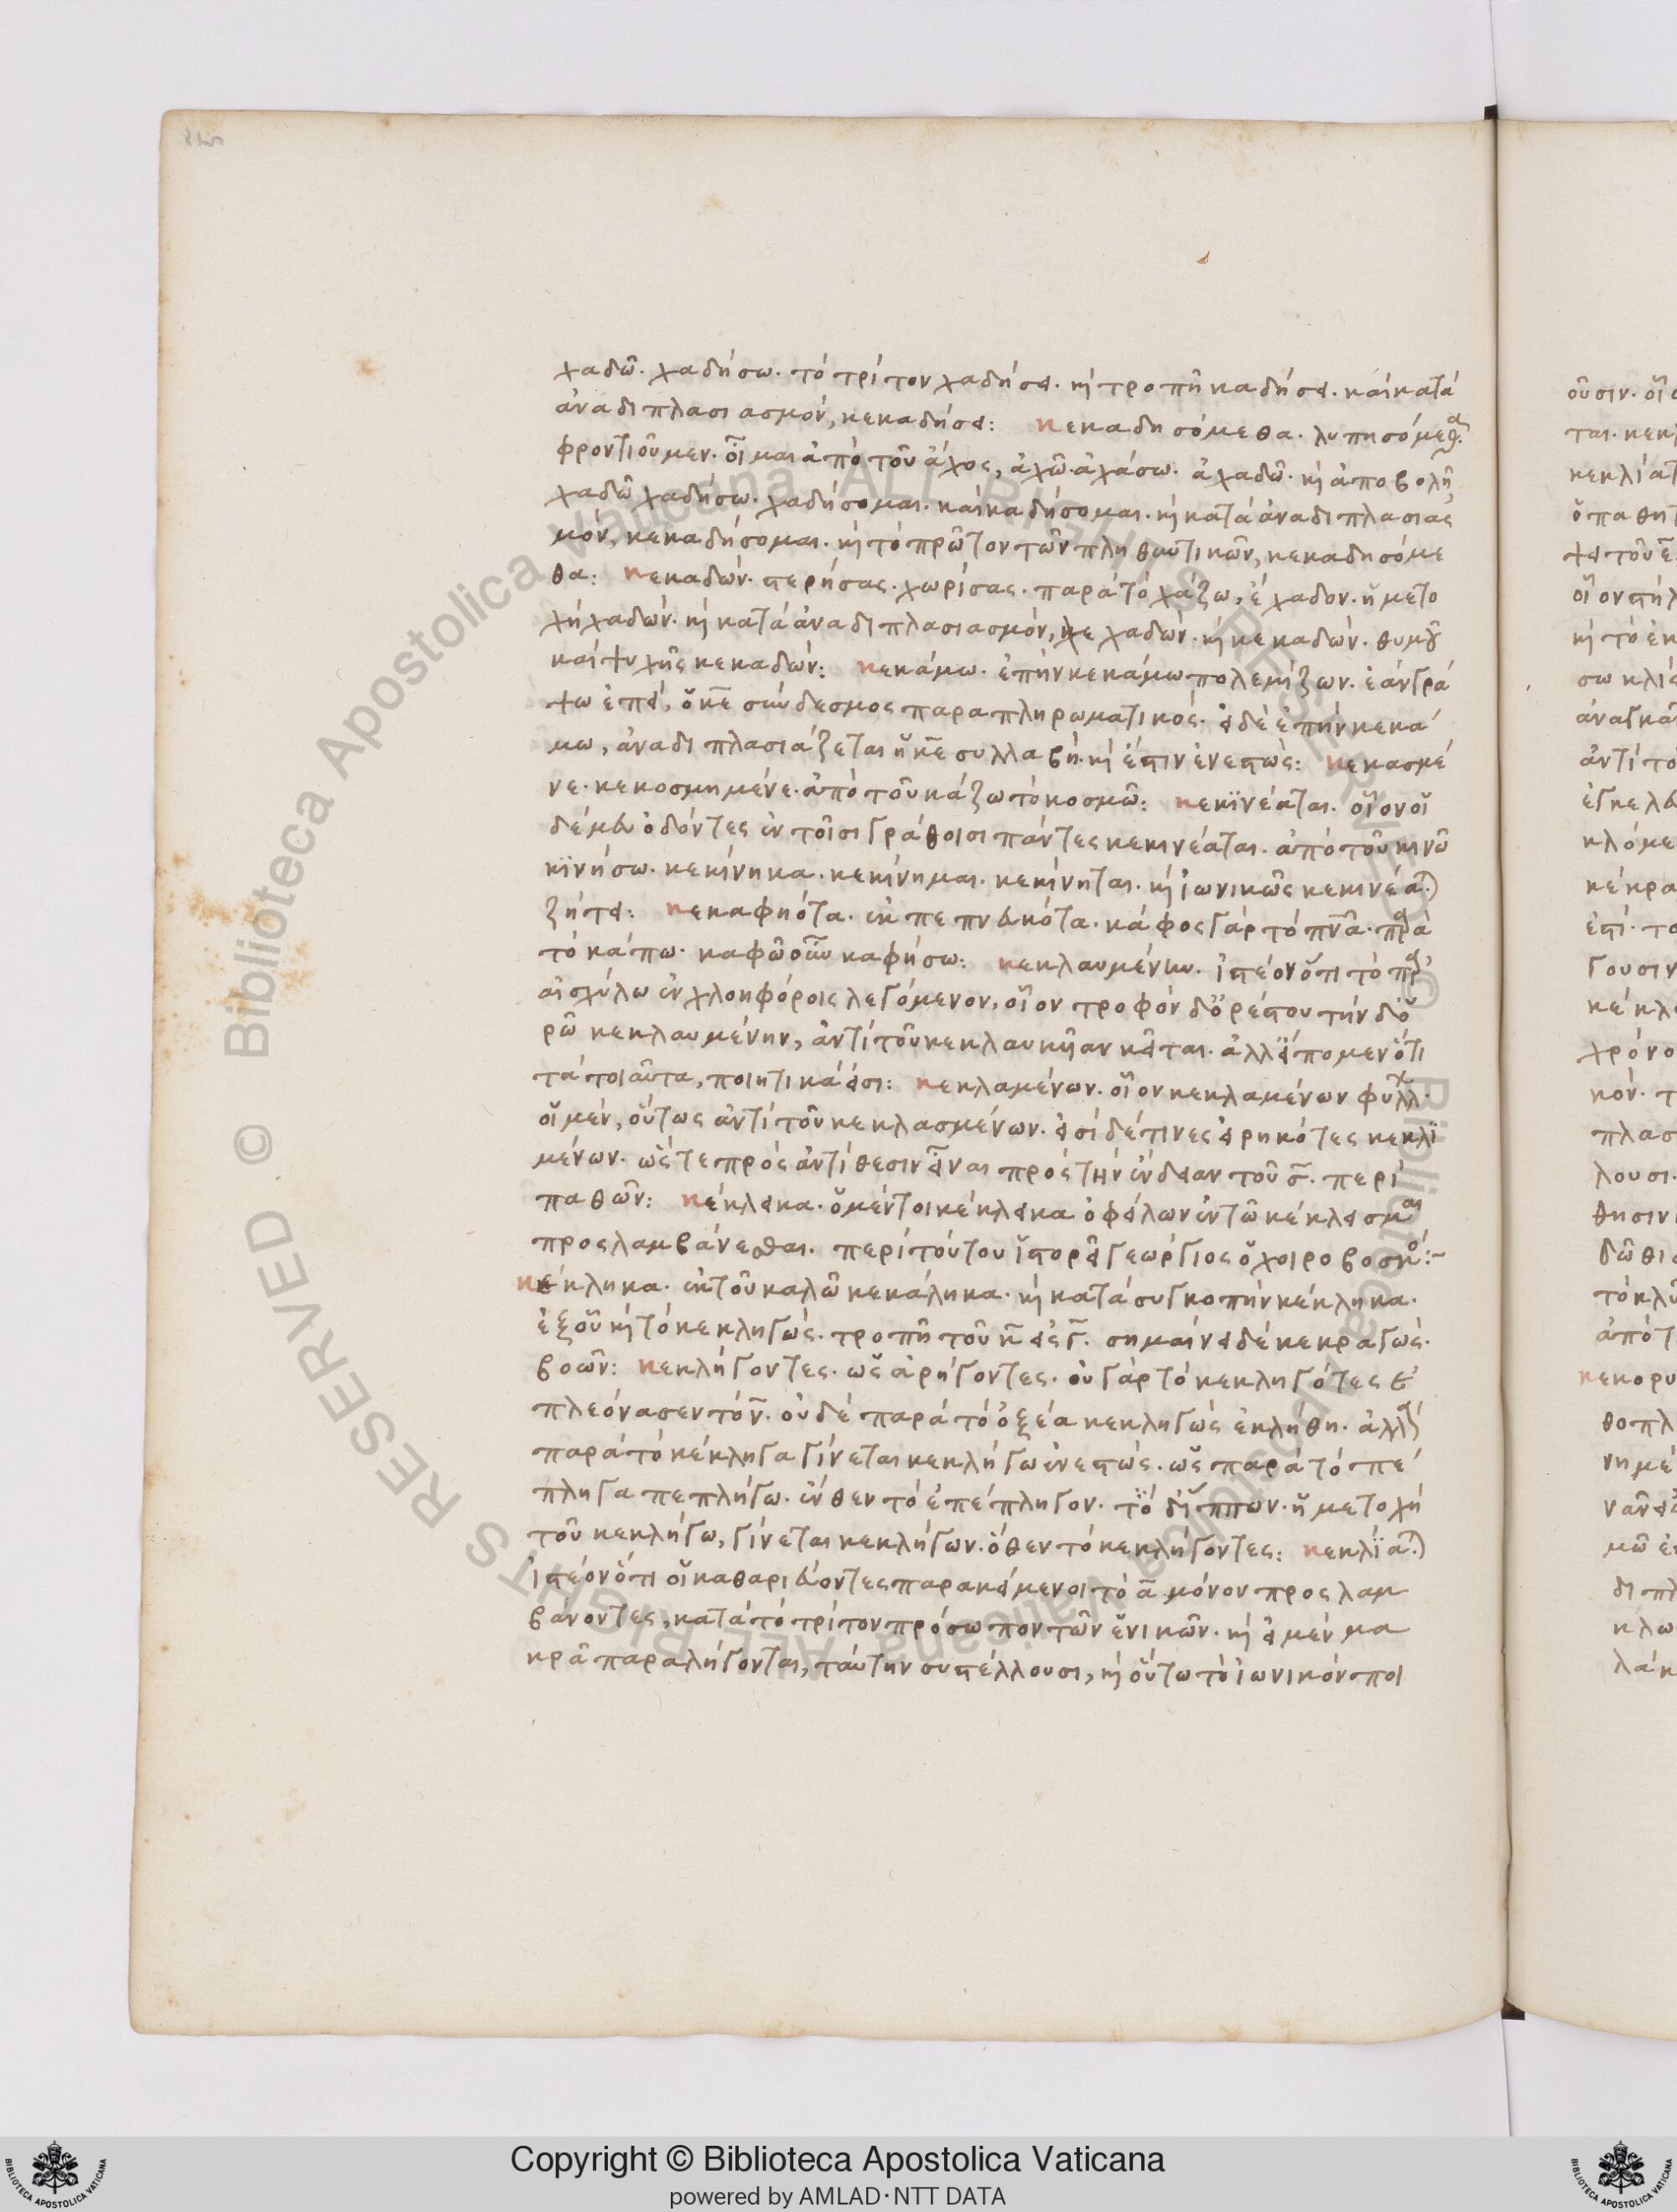 χαδῶ. χαδήσω. τὸ τρίτον χαδήσει. καὶ τροπῇ καδήσει. καὶ κατὰ
ἀναδιπλασιασμόν, κεκαδήσει: κεκαδησόμεθα. λυπησόμεθα.
φροντιοῦμεν. οἶμαι ἀπὸ τοῦ ἄχος, ἀχῶ. ἀχάσω. ἀχαδῶ. καὶ ἀποβολῇ
χαδῶ χαδήσω. χαδήσομαι. καὶ καδήσομαι. καὶ κατὰ ἀναδιπλασιασ
μόν, κεκαδήσομαι. καὶ τὸ πρῶτον τῶν πληθυντικῶν, κεκαδησόμε
θα: κεκαδών. στερήσας. χωρίσας. παρὰ τὸ χάζω, ἔχαδον. ἡ μετο
χὴ χαδών. καὶ κατὰ ἀναδιπλασιασμόν, κεχαδών. καὶ κεκαδών. θυμοῦ
καὶ ψυχῆς κεκαδών: κεκάμω. ἐπὴν κεκάμω πολεμίζων. ἐὰν γρά
ψω ἐπεί, ὁ κε σύνδεσμος παραπληρωματικός. εἰ δὲ ἐπὴν κεκά
μω, ἀναδιπλασιάζεται ἡ κε συλλαβή. καὶ ἔστιν ἐνεστώς: κεκασμέ
νε. κεκοσμημένε. ἀπὸ τοῦ κάζω τὸ κοσμῶ: κεκινέαται. οἷον οἱ
δέ μευ ὀδόντες ἐν τοῖσι γράθοισι πάντες κεκινέαται. ἀπὸ τοῦ κινῶ
κινήσω. κεκίνηκα. κεκίνημαι. κεκίνηται. καὶ ἰωνικῶς κεκινέαται
ζήτει: κεκαφηότα. ἐκπεπνευκότα. κάφος γὰρ τὸ πνα. παρὰ
τὸ κάπω. καφῶ οὖν καφήσω: κεκλαυμένην. ἰστέον ὅτι τὸ παρ'
αἰσχύλω ἐν χλοηφόροις λεγόμενον, οἷον τροφὸν δ' ὀρέστου τήνδ' ὁ
ρῶ κεκλαυμένην, ἀντὶ τοῦ κεκλαυκῆαν κεῖται. ἀλλ' εἴπομεν ὅτι
τὰ τοιαῦτα, ποιητικά εἰσι: κεκλαμένων. οἷον κεκλαμένων φύλλ
οἱ μέν, οὕτως ἀντὶ τοῦ κεκλασμένων. εἰσὶ δέ τινες εἰρηκότες κεκλι
μένων. ὥστε πρὸς ἀντίθεσιν εἶναι πρὸς τὴν ἔνδειαν τοῦ σ. περὶ
παθῶν: κέκλεικα. ὁ μέντοι κέκλεικα ὀφείλων ἐν τῶ κέκλεισμαι
προσλαμβάνεσθαι. περὶ τούτου ἱστορεῖ γεώργιος ὁ χοιροβοσκός:~
κέκληκα. ἐκ τοῦ καλῶ κεκάληκα. καὶ κατὰ συγκοπὴν κέκληκα.
ἐξ οὗ καὶ τὸ κεκληγώς. τροπῇ τοῦ κ εἰς γ. σημαίνει δὲ κεκραγώς.
βοῶν: κεκλήγοντες. ὡς ἀρήγοντες. οὐ γὰρ τὸ κεκληγότες ἐ
πλεόνασεν τὸ ν. οὐδὲ παρὰ τὸ ὀξέα κεκληγὼς ἐκλήθη. ἀλλὰ
παρὰ τὸ κέκληγα γίνεται κεκλήγω ἐνεστώς. ὡς παρὰ τὸ πέ
πληγα πεπλήγω. ἔνθεν τὸ ἐπέπληγον. τὸ δι' ἵππων. ἡ μετοχὴ
τοῦ κεκλήγω, γίνεται κεκλήγων. ὅθεν τὸ κεκλήγοντες: κεκλίαται
ἰστέον ὅτι οἱ καθαριεύοντες παρακείμενοι τὸ α μόνον προσλαμ
βάνοντες, κατὰ τὸ τρίτον πρόσωπον τῶν ἑνικῶν. καὶ εἰ μὲν μα
κρᾷ παραλήγονται, ταύτην συστέλλουσι, καὶ οὕτω τὸ ἰωνικὸν ποι
Copyright © Biblioteca Apostolica Vaticana
powered by AMLAD·NTT DATA